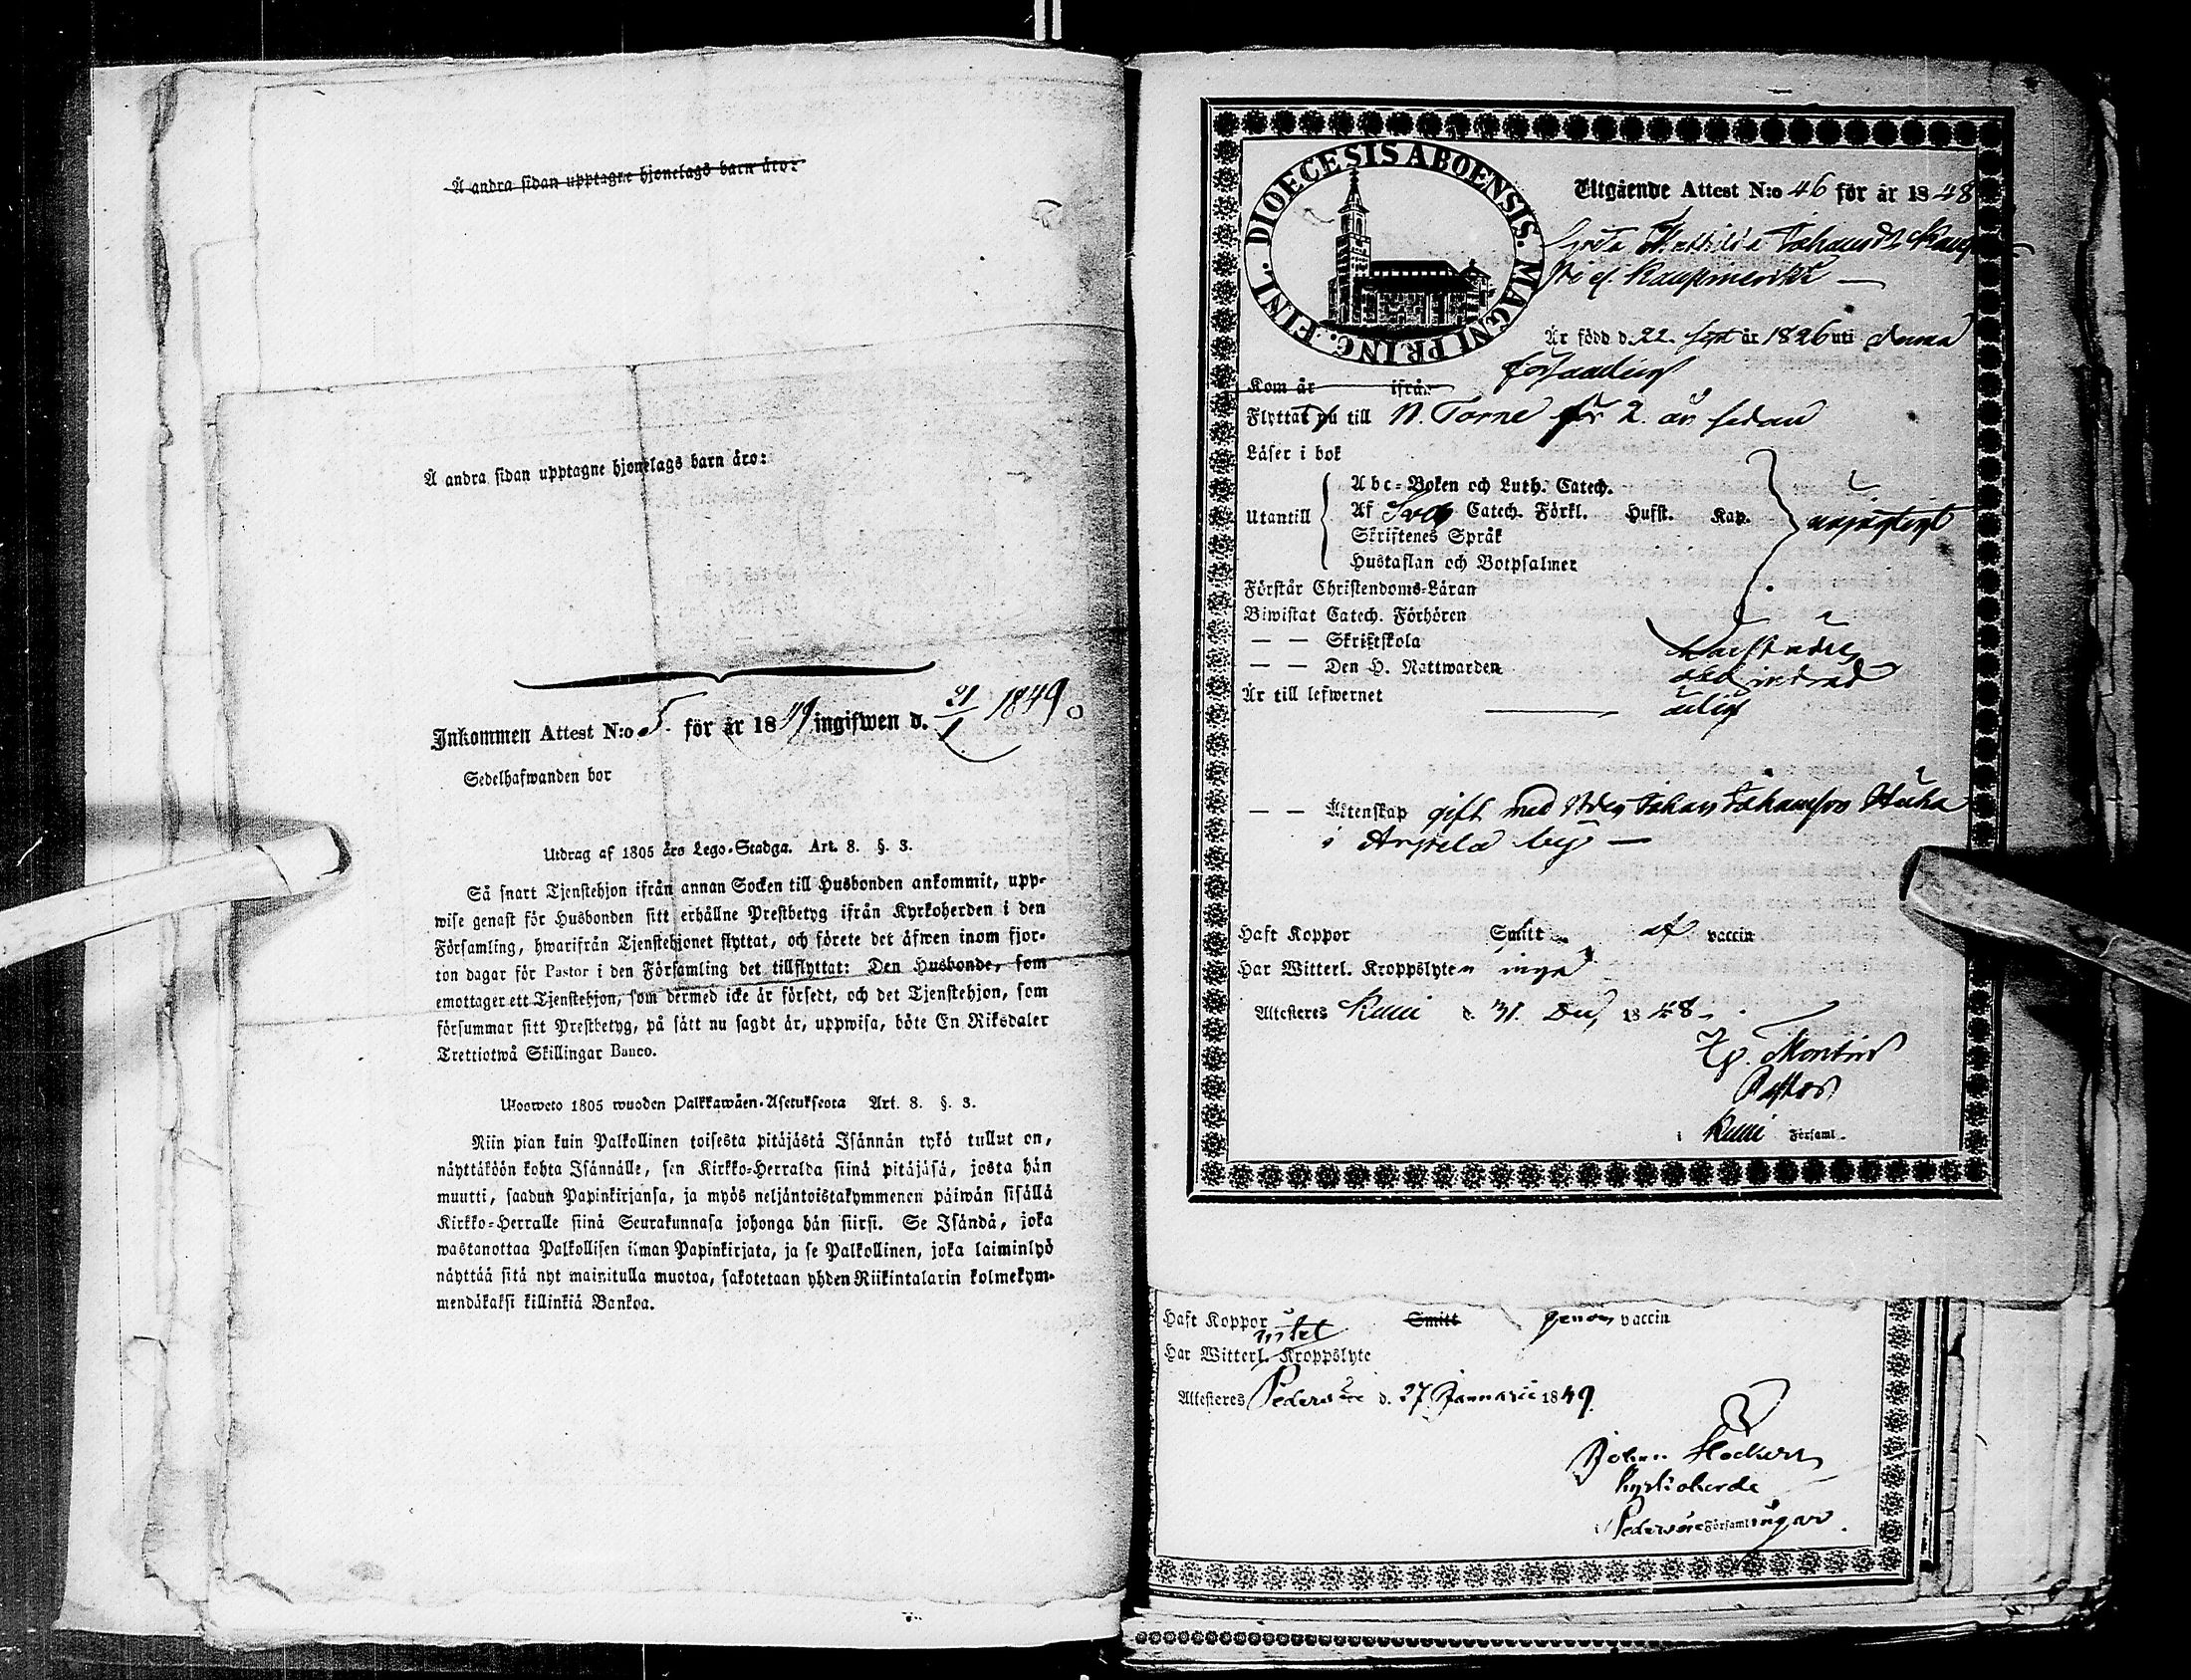 Å andra sidan upptagne hjonelags barn äro:
Å andra sidan upptagne hjonelags barn äro:
Inkommen Attest N:o 5 för år 1849 ingifwen d. 21/1 1849
Sedelhafwanden bor
Utdrag af 1805 års Lego-Stadga. Art. 8. §. 3.
Så snart Tjenstehjon ifrån annan Socken till Husbonden ankommit, upp-
wise genast för Husbonden sitt erhållne Prestbetyg ifrån Kyrkoherden i den
Församling, hwarifrån Tjenstehjonet flyttat, och förete det äfwen inom fjor-
ton dagar för Pastor i den Församling det tillflyttat: Den Husbonde, som
emottager ett Tjenstehjon, som dermed icke är försedt, och det Tjenstehjon, som
försummar sitt Prestbetyg, på sätt nu sagdt är, uppwisa, böte En Riksdaler
Trettiotwå Skillingar Banco.
Ulosweto 1805 wuoden Palkkawäen-Asetuksesta Art. 8. §. 3.
Niin pian kuin Palkollinen toisesta pitäjästä Isännän tykö tullut on,
näyttäköön kohta Isännälle, sen Kirkko-Herralda siinä pitäjäsä, josta hän
muutti, saadun Papinkirjansa, ja myös neljäntoistakymmenen päiwän sisällä
Kirkko-Herralle siinä Seurakunnasa johonga hän siirsi. Se Isändä, joka
wastanottaa Palkollisen ilman Papinkirjata, ja se Palkollinen, joka laiminlyö
näyttää sitä nyt mainitulla muotoa, sakotetaan yhden Riikintalarin kolmekym-
mendäkaksi killinkiä Bankoa.
DIOECESIS ABOENSIS. MAGNI PRINC. FINL.
Utgående Attest N:o 46 för år 1848
Greta Mathilda Johansdr
Kaupinenkä
Är född d. 22. Sept år 1826 uti denna
församling
Kom år ifrån
Flyttat nu till N. Torne för 2. år sedan
Läser i bok
Abc-Boken och Luth. Catech.
Utantill Af Sveb Catech. Förkl. Husst. Kap.
Skriftenes Språk
Hustaflan och Botpsalmer
Förstår Christendoms-Läran
Biwistat Catech. Förhören
— — Skriftskola
— — Den H. Nattwarden
Är till lefwernet ärlig
— — Äktenskap gift med Johan Johansson
i by —
Haft Koppor Smitt af vaccin
Har Witterl. Kroppslyten inga
Attesteres Kemi d. 31. Dec, 1848.
Montin
Pastor
i Kemi Församl.
Haft Koppor Smitt genom vaccin
intet
Har Witterl. Kroppslyte
Attesteres Pedersöre d. 27 Januarii 1849
Johan
Kyrkoherde
i Pedersöre Församlingar.